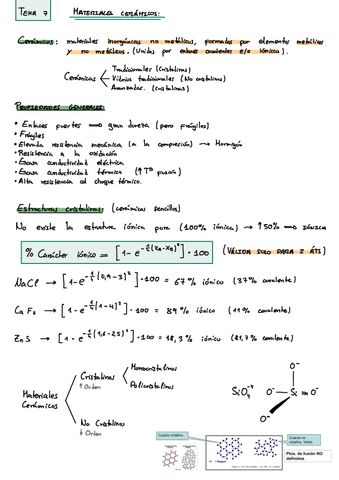 TEMA 7 MATERIALES CERÁMICOS:
Cerámicos: materiales inorgánicos no metálicos, formados por elementos metálicos
y no metálicos. (Unidos por enlaces covalentes e/o iónico).
Tradicionales (Cristalinos)
Cerámicos Vidrios tradicionales (No cristalinos)
Avanzados. (cristalinos)
PROPIEDADES GENERALES:
• Enlaces fuertes ⟹ gran dureza (pero frágiles)
• Frágiles
• Elevada resistencia mecánica (a la compresión) → Hormigón
• Resistencia a la oxidación
• Escasa conductividad eléctrica
• Escasa conductividad térmica (↑Tª fusión)
• Alta resistencia al choque térmico.
Estructuras cristalinas: (cerámicos sencillos)
No existe la estructura iónica pura (100% iónica) → ↑50% ⟹ iónica
% Carácter iónico = [1-e^-¼(XA-XB)²] · 100 (VÁLIDA SOLO PARA 2 ÁTS)
NaCl → [1-e^-¼(0,9-3)²] · 100 = 67% iónico (37% covalente)
CaF₂ → [1-e^-¼(1-4)²] · 100 = 89% iónico (11% covalente)
ZnS → [1-e^-¼(1,6-2,5)²] · 100 = 18,3% iónico (81,7% covalente)
Materiales Cerámicos
Cristalinos
↑ Orden
Monocristalinos
Policristalinos
No Cristalinos
↓ Orden
SiO₄⁻⁴ → O⁻ Si O⁻ O⁻ O⁻
Cuarzo cristalino
Cuarzo no cristalino. Vidrio
Ptos. de fusión NO definidos